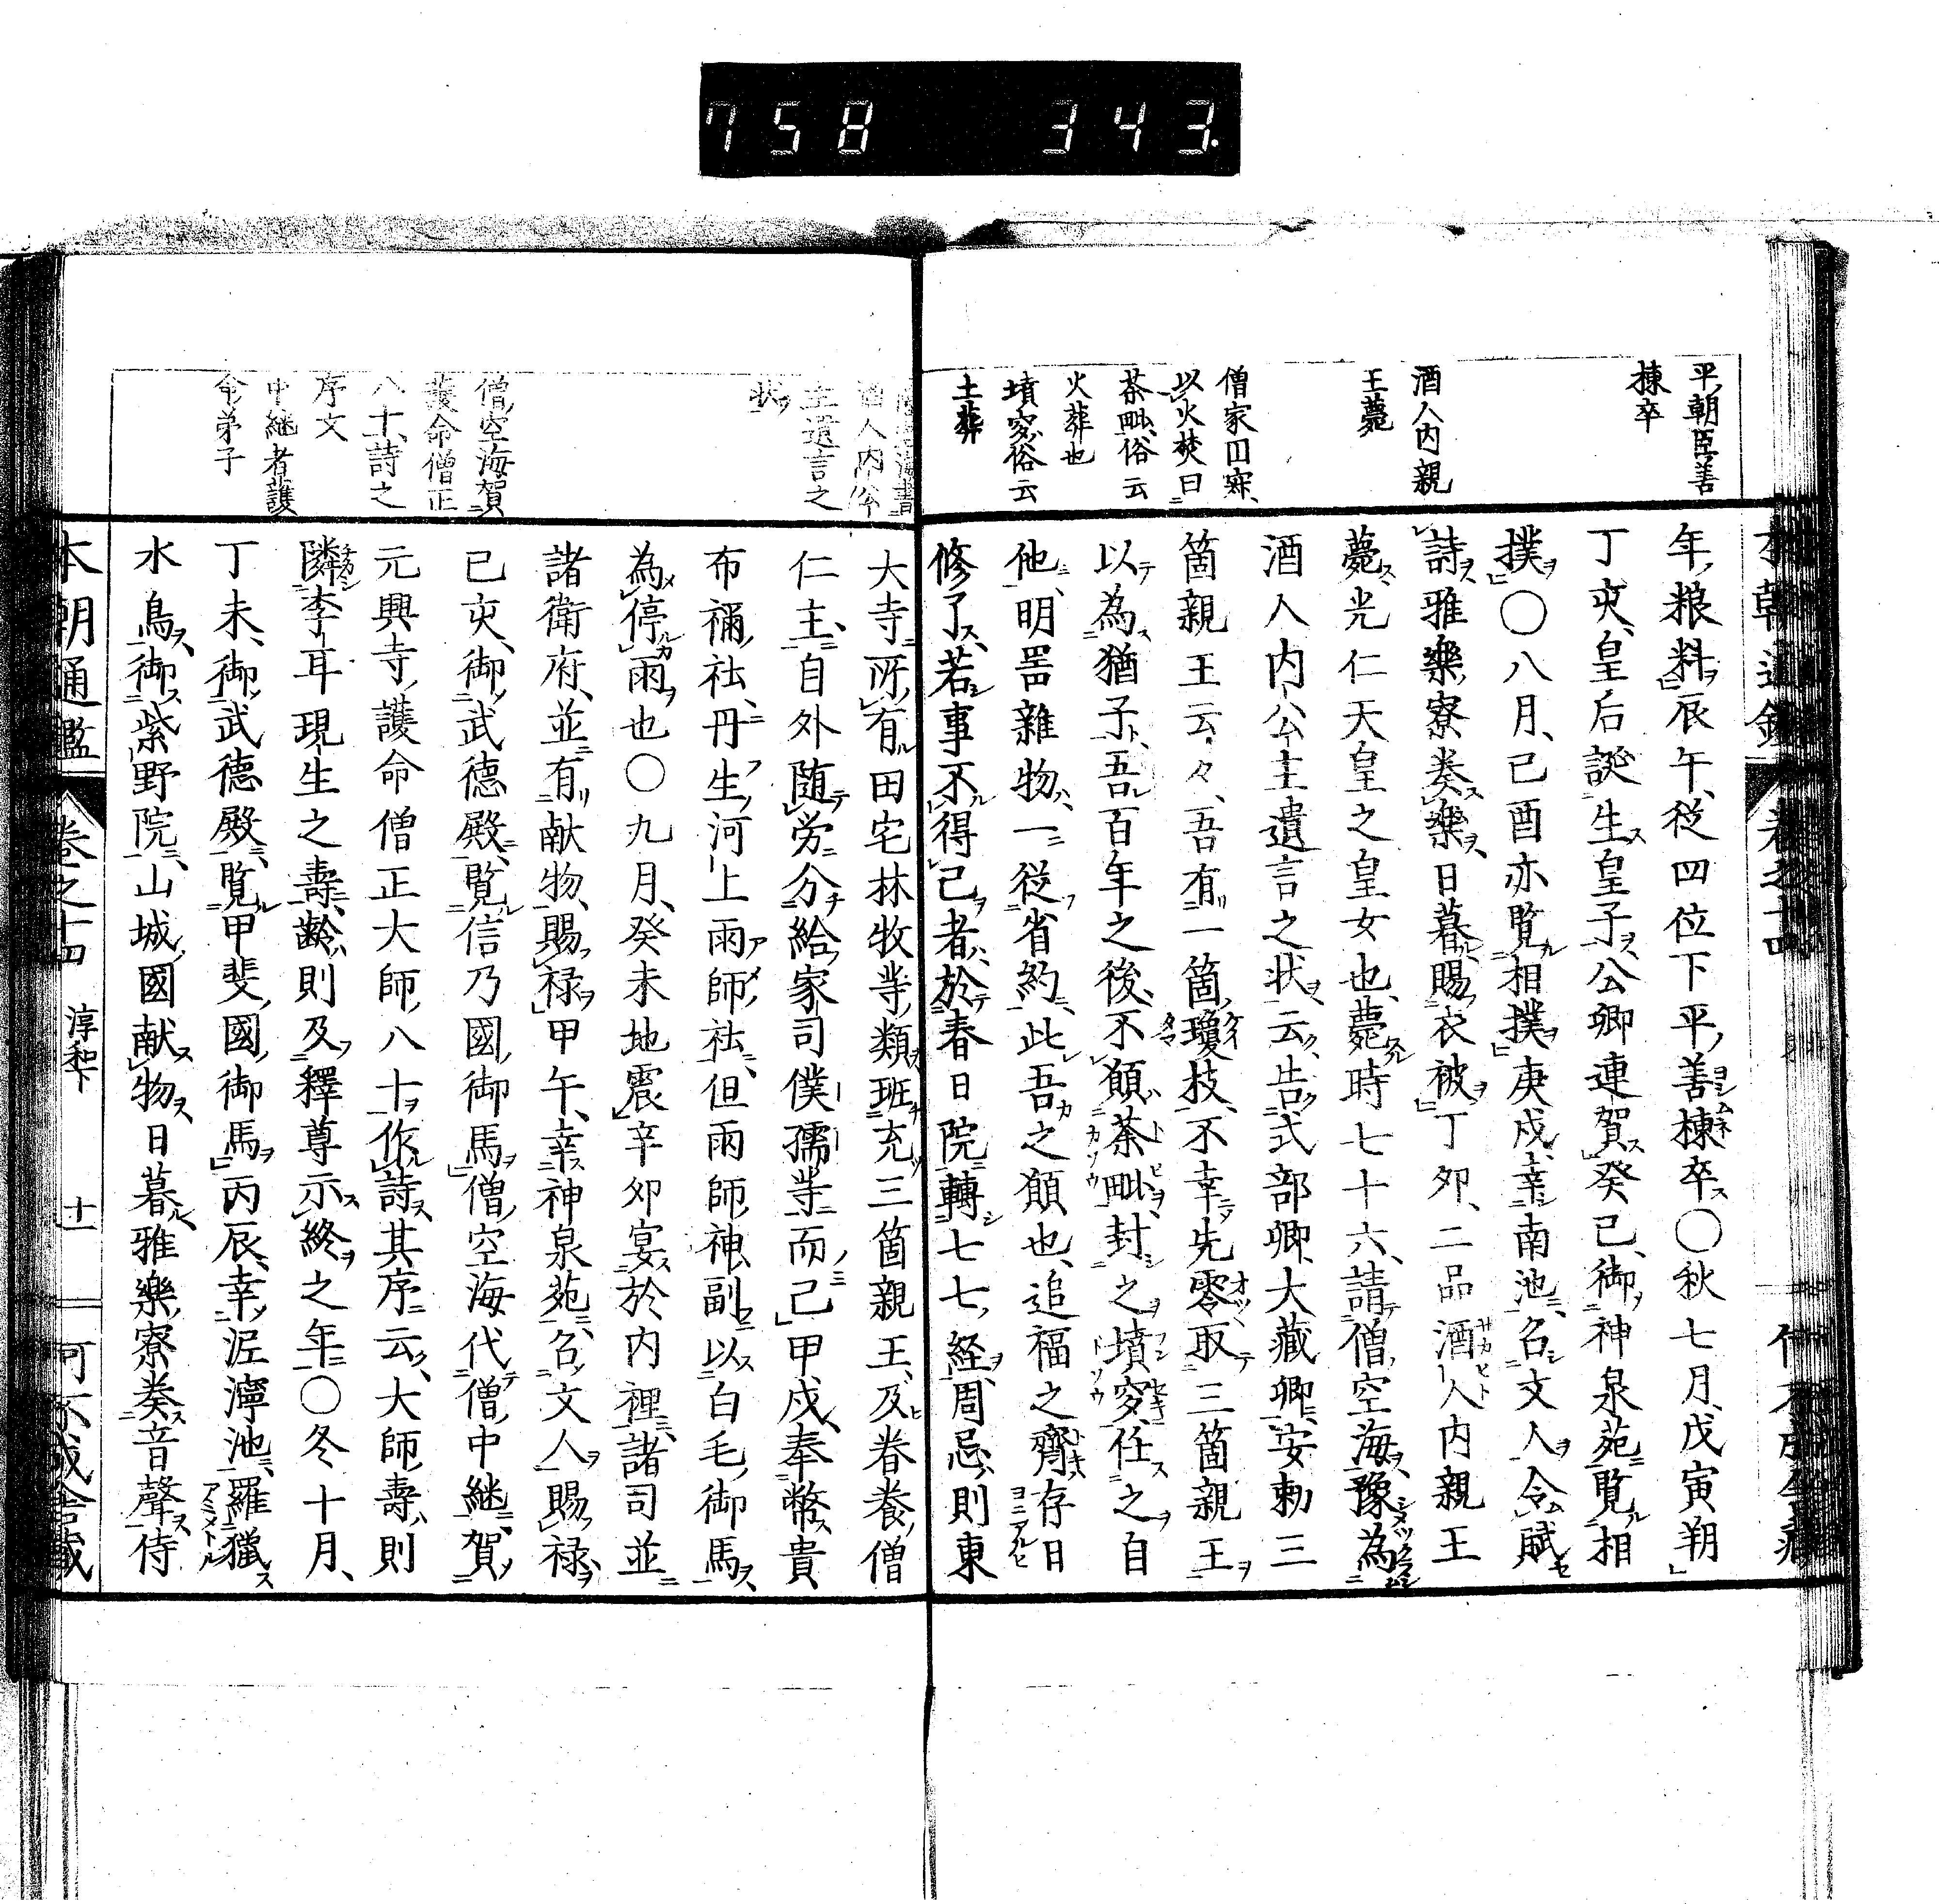 758 343.
平朝臣善
棟卒
酒人内親
王薨
僧家円寂
以火焚曰
荼毗俗云
火葬也
墳窆俗云
土葬
年粮料辰午從四位下平善棟卒〇秋七月戊寅朔
丁亥皇后誕生皇子公卿連賀癸巳御神泉苑覧相
撲〇八月己酉亦覧相撲庚戌幸南池召文人令賦
詩雅樂寮奏樂日暮賜衣被丁夘二品酒人内親王
薨光仁天皇之皇女也薨時七十六請僧空海豫為
酒人内公主遺言之状云告式部卿大藏卿安勅三
箇親王云々吾有一箇瓊枝不幸先零取三箇親王
以為猶子吾百年之後不願荼毗封之墳窆任之自
他明噐雜物一從省約此吾之願也追福之齋存日
修了若事不得已者於春日院轉七七経周忌則東
主遺言之
状
僧空海賀
護命僧正
八十詩之
序文
中継者護
命弟子
大寺所有田宅林牧等類班充三箇親王及眷養僧
仁主自外随労分給家司僕孺等而已甲戌奉幣貴
布禰社丹生河上雨師社但雨師神副以白毛御馬
為停雨也〇九月癸未地震辛夘宴於内裡諸司並
諸衛府並有献物賜禄甲午幸神泉苑召文人賜禄
已亥御武德殿覧信乃國御馬僧空海代僧中継賀
元興寺護命僧正大師八十作詩其序云大師壽則
隣李耳現生之壽齡則及釋尊示終之年〇冬十月
丁未御武德殿覧甲斐國御馬丙辰幸泥濘池羅獵
水鳥御紫野院山城國献物日暮雅樂寮奏音聲侍
本朝通鑑 卷之十四 淳和下 十一